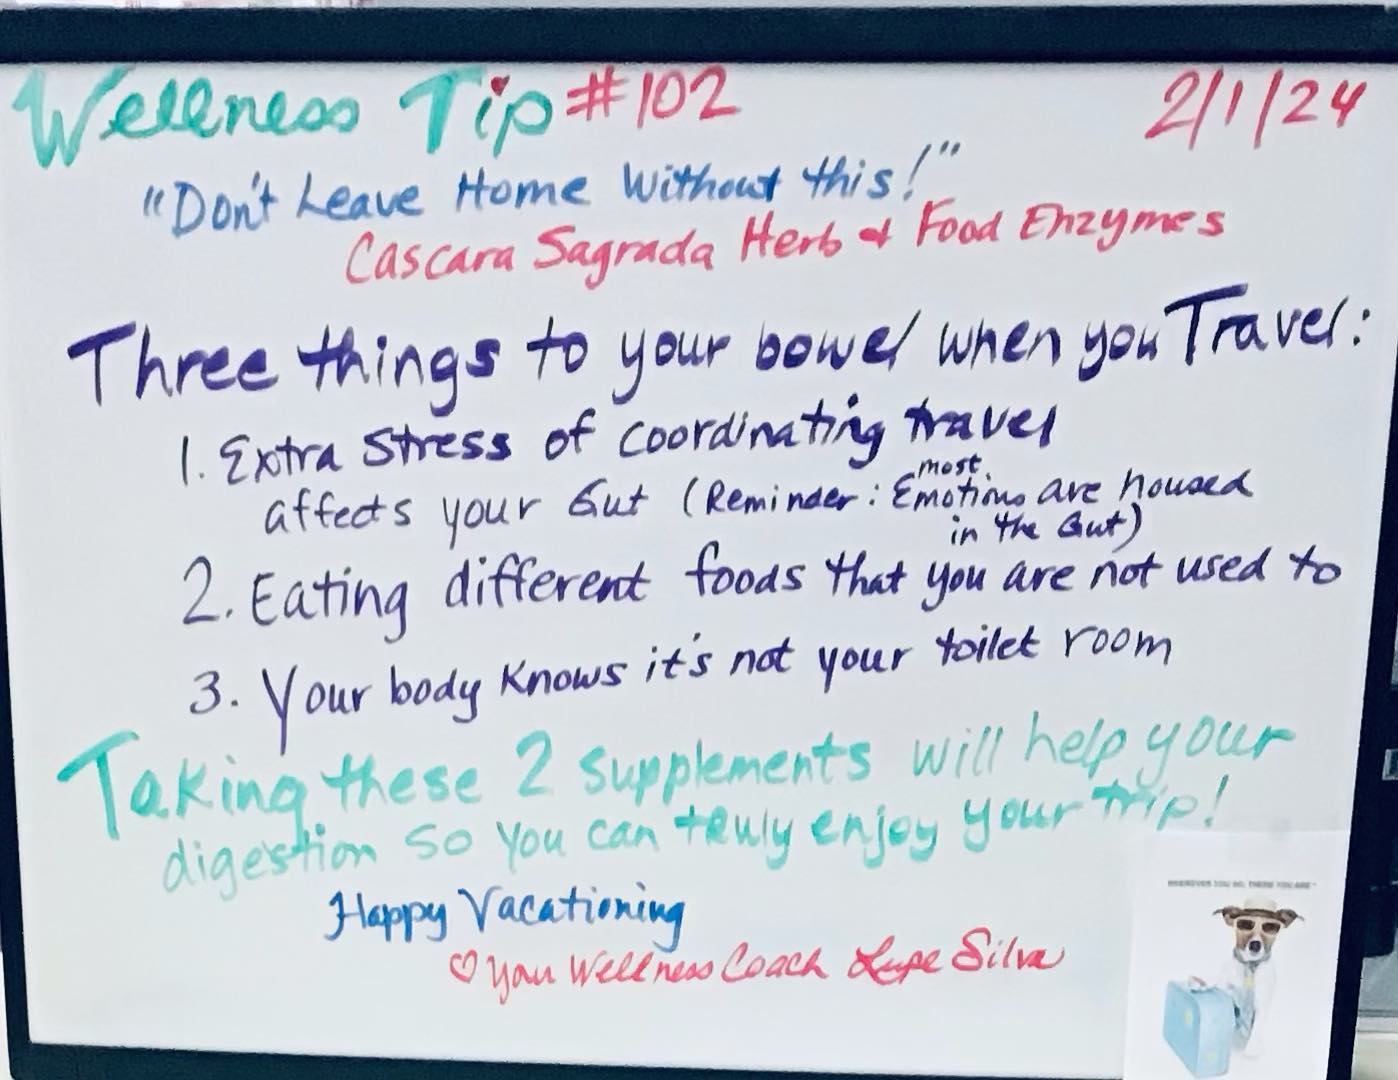 Wellness Tip #102
2/1/24
"Don't Leave Home Without this!"
Cascara Sagrada Herb & Food Enzymes
Three things to your bowel when you Travel:
1. Extra Stress of coordinating travel
affects your Gut (Reminder: most Emotions are housed
in the Gut)
2. Eating different foods that you are not used to
3. Your body knows it's not your toilet room
Taking these 2 supplements will help your
digestion so you can truly enjoy your trip!
Happy Vacationing
♡ your Wellness Coach Lupe Silva
WHEREVER YOU GO, THERE YOU ARE